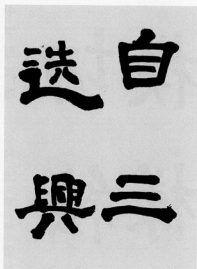 自三
迭興